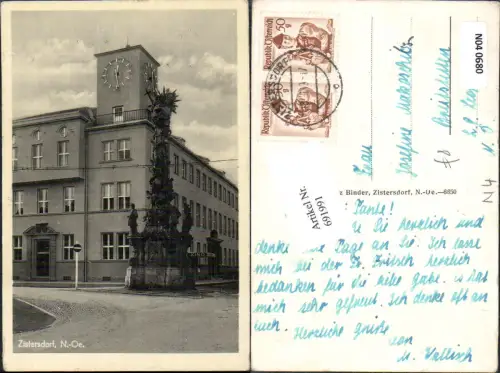 Zistersdorf, N.-Oe.
Republik Österreich 50
Republik Österreich
ND4 0680
N4
Artikel Nr.
691991
Binder, Zistersdorf, N.-Oe.—8050
Frau
Josefine
Tante!
Sie herzlich und
denke Tage an Sie. Ich lasse
mich bei der Fr. Fritsch herzlich
bedanken für die liebe Gabe. es hat
mich sehr gefreut. Ich denke oft an
euch. Herzliche Grüße
von
M. Wallisch